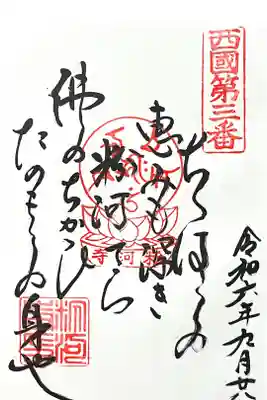 西國第三番
令和六年九月廿八
ちゝはゝの
恵みも深き
粉河でら
佛のちかひ
たのもしの身や
粉河寺